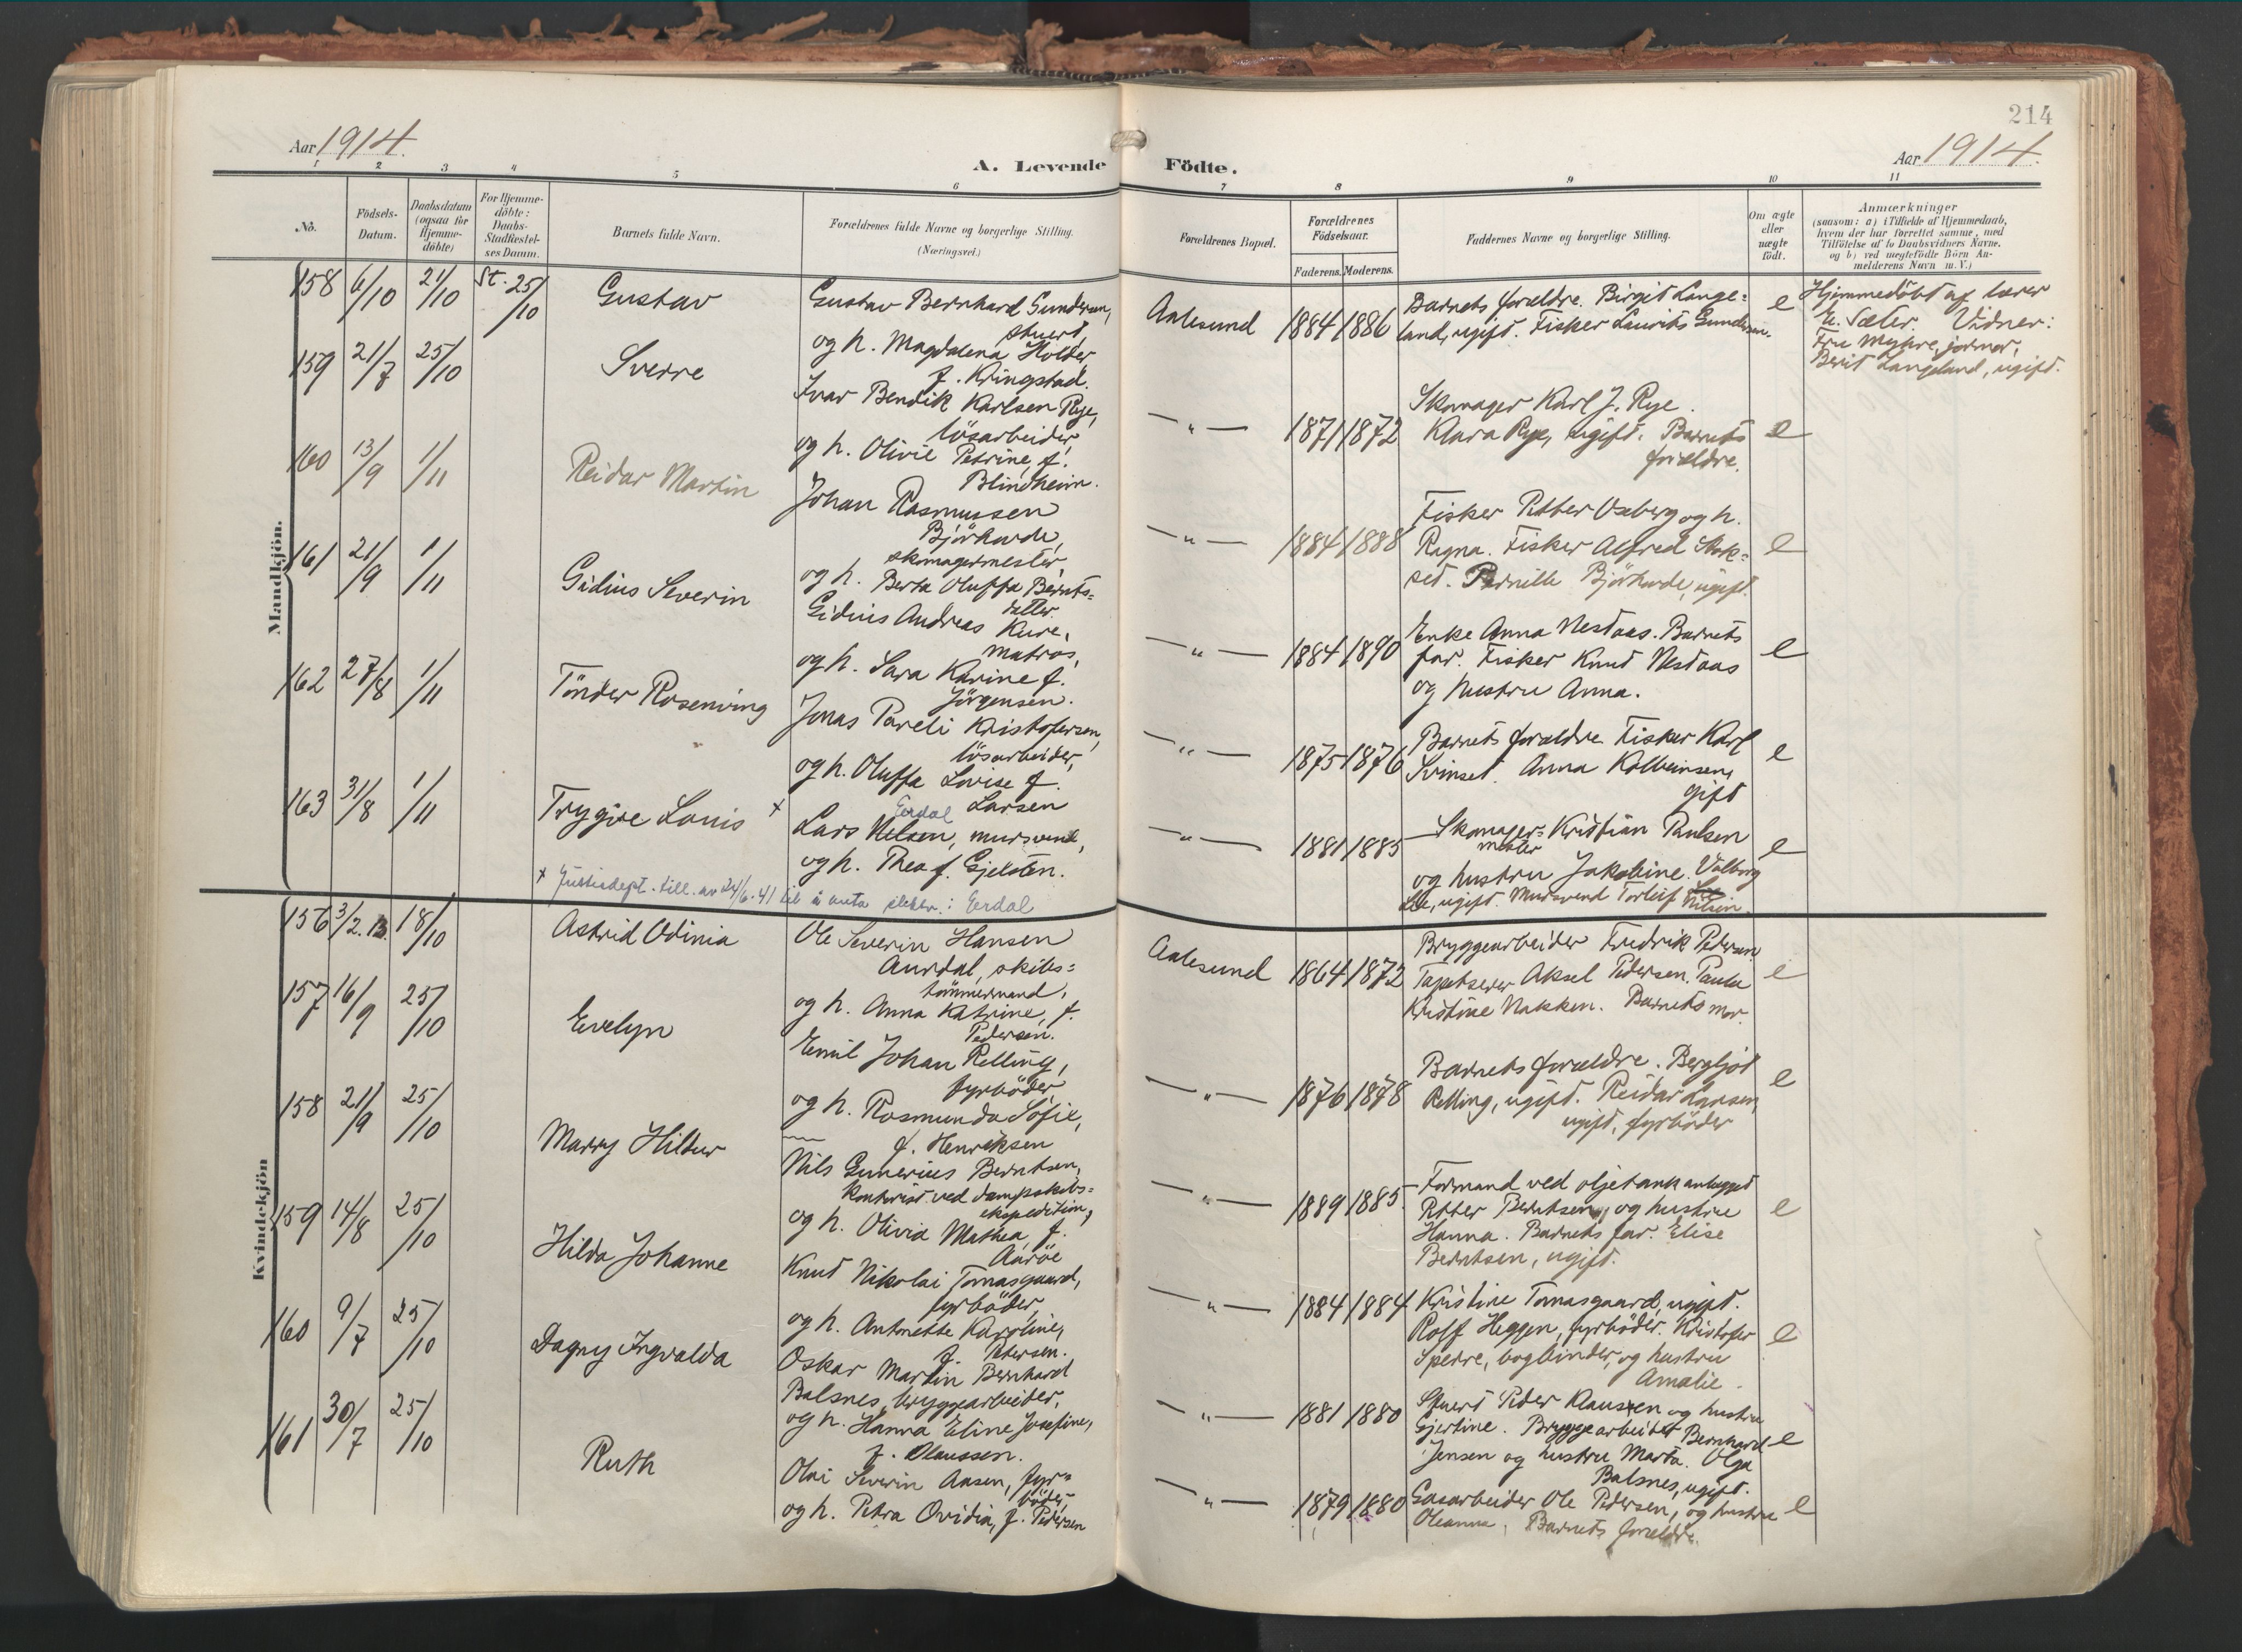 214
Aar 1914.
A. Levende Födte.
Aar 1914.
1 2 3 4 5 6 7 8 9 10 11
No.
Födsels-Datum.
Daabsdatum (ogsaa for Hjemme-döbte)
For Hjemme-döbte: Daabs-Stadfæstel-ses Datum.
Barnets fulde Navn.
Forældrenes fulde Navne og borgerlige Stilling.
(Næringsvei.)
Forældrenes Bopæl.
Forældrenes Födselsaar.
Faderens. Moderens.
Faddernes Navne og borgerlige Stilling.
Om ægte eller uægte födt.
Anmærkninger
(saasom: a) i Tilfælde af Hjemmedaab,
hvem der har forrettet samme, med
Tilföielse af to Daabsvidners Navne.
og b) ved uægtefödte Börn An-
melderens Navn m. V.)
Mandkjön.
158 6/10 21/10 St. 25/10 Gustav
Gustav Bernhard Gundersen,
stuert,
og h. Magdalena Holder,
f. Kringstad.
Aalesund 1884 1886
Barnets forældre. Birgit Lange=
land, ugift. Fisker Laurits Gundersen.
e
Hjemmedöbt af lærer
E. Sæter. Vidner:
Fru Myhre, jormor,
Berit Langeland, ugift.
159 21/7 25/10 Sverre
Ivar Bendik Karlsen Rye,
lösarbeider,
og h. Olivie Petrine, f.
Blindheim.
— " — 1871 1872
Skomager Karl J. Rye.
Klara Rye, ugift. Barnets
forældre.
e
160 13/9 1/11 Reidar Martin
Johan Rasmussen
Björkavde,
skomagermester,
og h. Berta Oluffa Bernts=
datter.
— " — 1884 1888
Fisker Petter Oxberg og h.
Ragna. Fisker Alfred Stok=
set. Pernille Björkavde, ugift.
e
161 21/9 1/11 Gidius Severin
Gidius Andreas Kure,
matros,
og h. Sara Karine f.
Jörgensen.
— " — 1884 1890
Enke Anna Nestaas. Barnets
far. Fisker Knut Nestaas
og hustru Anna.
e
162 27/8 1/11 Tönder Rosenving
Jonas Pareli Kristofersen,
lösarbeider,
og h. Oluffa Lovise f.
Larsen
— " — 1875 1876
Barnets forældre. Fisker Karl
Svinset. Anna Kolbeinsen,
gift
e
163 31/8 1/11 Trygve Louis x
Eerdal
Lars Nelsen, mursvend,
og h. Thea f. Gjelsten.
— " — 1881 1885
Skomager=
mester Kristian Paulsen
og hustru Jakobine. Valborg
Lie, ugift. Mursvend Torleif Nilsen.
e
x Justisdept. till. av 24/6-41 til å anta slektsn.: Eerdal
Kvindekjön
156 3/2.13. 18/10 Astrid Odinia
Ole Severin Hansen
Aurdal, skibs=
tömmermand,
og h. Anna Katrine, f.
Pedersen.
Aalesund 1864 1872
Bryggearbeider Fredrik Pedersen
Tapetserer Aksel Pedersen. Paula
Kristine Nakken. Barnets mor.
e
157 16/9 25/10 Evelyn
Emil Johan Relling,
fyrböder,
og h. Rosmunda Sofie,
f. Henriksen
— " — 1876 1878
Barnets forældre. Bergljot
Relling, ugift. Reidar Larsen,
ugift, fyrböder
e
158 21/9 25/10 Marry Hildur
Nils Gunerius Berntsen,
kontorist ved dampskibs=
ekspedition,
og h. Olivia Mathea, f.
Aaröe
— " — 1889 1885
Formand ved oljetankanlægget
Petter Berntsen, og hustru
Hanna. Barnets far. Elise
Berntsen, ugift.
e
159 14/8 25/10 Hilda Johanne
Knut Nikolai Tomasgaard,
fyrböder,
og h. Antonette Karoline,
f. Petersen.
— " — 1884 1884
Kristine Tomasgaard, ugift.
Rolf Heggen, fyrböder. Kristofer
Sperre, bogbinder, og hustru
Amalie.
e
160 9/7 25/10 Dagny Ingvalda
Oskar Martin Bernhard
Balsnes, bryggearbeider,
og h. Hanna Eline Josefine,
f. Olaussen.
— " — 1881 1880
Stuert Peder Klausen og hustru
Gjertine. Bryggearbeider Bernhard
Jensen og hustru Marta. Olga
Balsnes, ugift.
e
161 30/7 25/10 Ruth
Olai Severin Aasen, fyr=
böder,
og h. Petra Ovidia, f. Pedersen
— " — 1879 1880
Gasarbeider Ole Pedersen, og hustru
Oleanna. Barnets forældre.
e